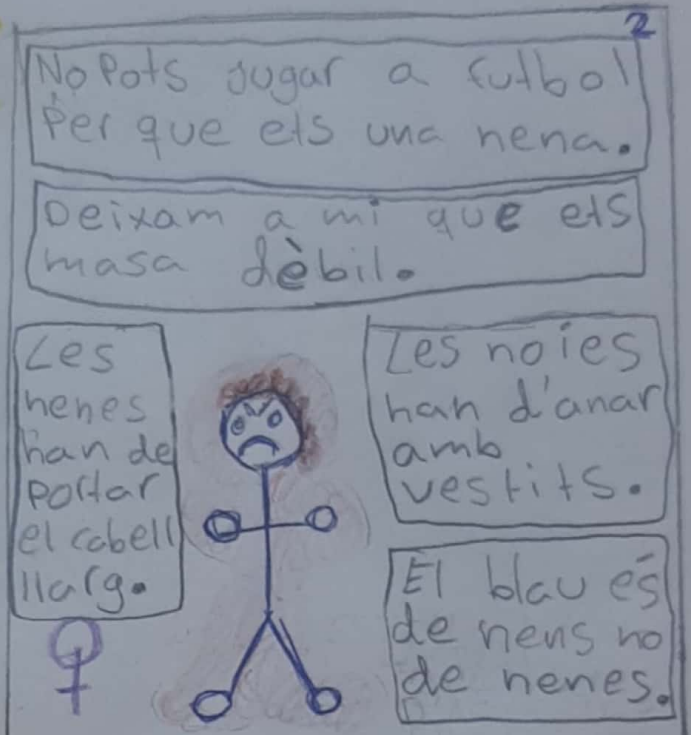 2
No Pots jugar a futbol
Per que ets una nena.
Deixam a mi que ets
masa dèbil.
Les
nenes
han de
portar
el cabell
llarg.
Les noies
han d'anar
amb
vestits.
El blau és
de nens no
de nenes.